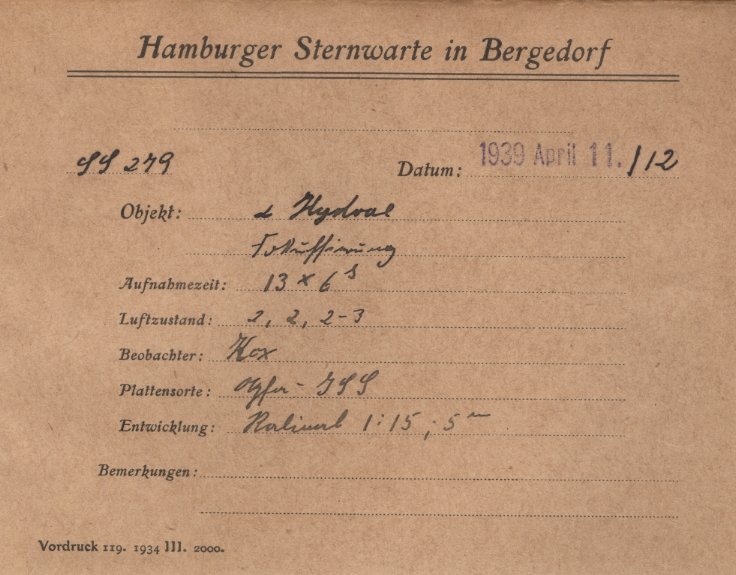 Hamburger Sternwarte in Bergedorf
SS 279 Datum: 1939 April 11./12
Objekt: α Hydrae
Fokussierung
Aufnahmezeit: 13 × 6 s
Luftzustand: 2, 2, 2-3
Beobachter: Kox
Plattensorte: Agfa - ISS
Entwicklung: Rodinal 1:15; 5 m
Bemerkungen:
Vordruck 119. 1934 III. 2000.